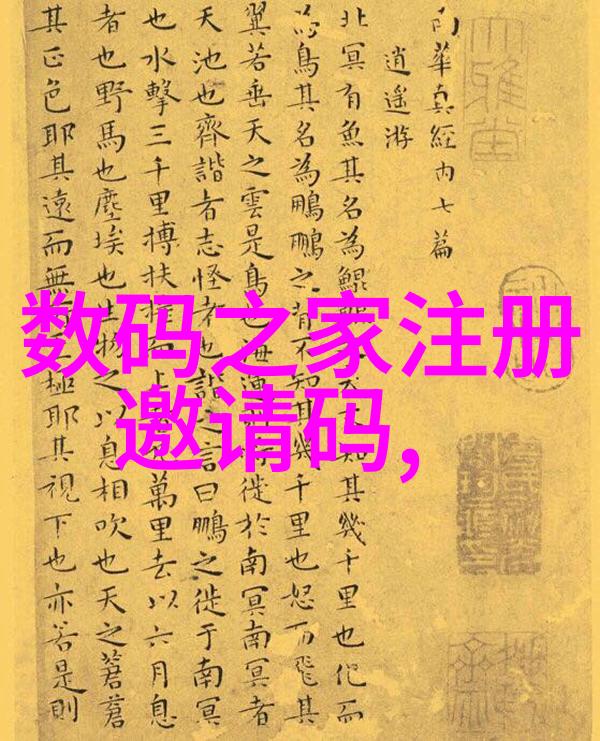 数码之家注册
邀请码,
大雅堂
南華真經內七篇
逍遙游
北冥有魚其名為鯤鯤大不知其幾千里也化而
為鳥其名為鵬鵬之背不知其幾千里也怒而飛其
翼若垂天之雲是鳥也海運徙於南冥南冥者
天池也齊諧者志怪者也諧之言曰鵬之徙于南冥
也水擊三千里搏扶搖而上萬里去以六月息
者也野馬也塵埃也生物之以息相吹也天之蒼蒼
其正色耶其遠而無極耶其視下也亦若是則